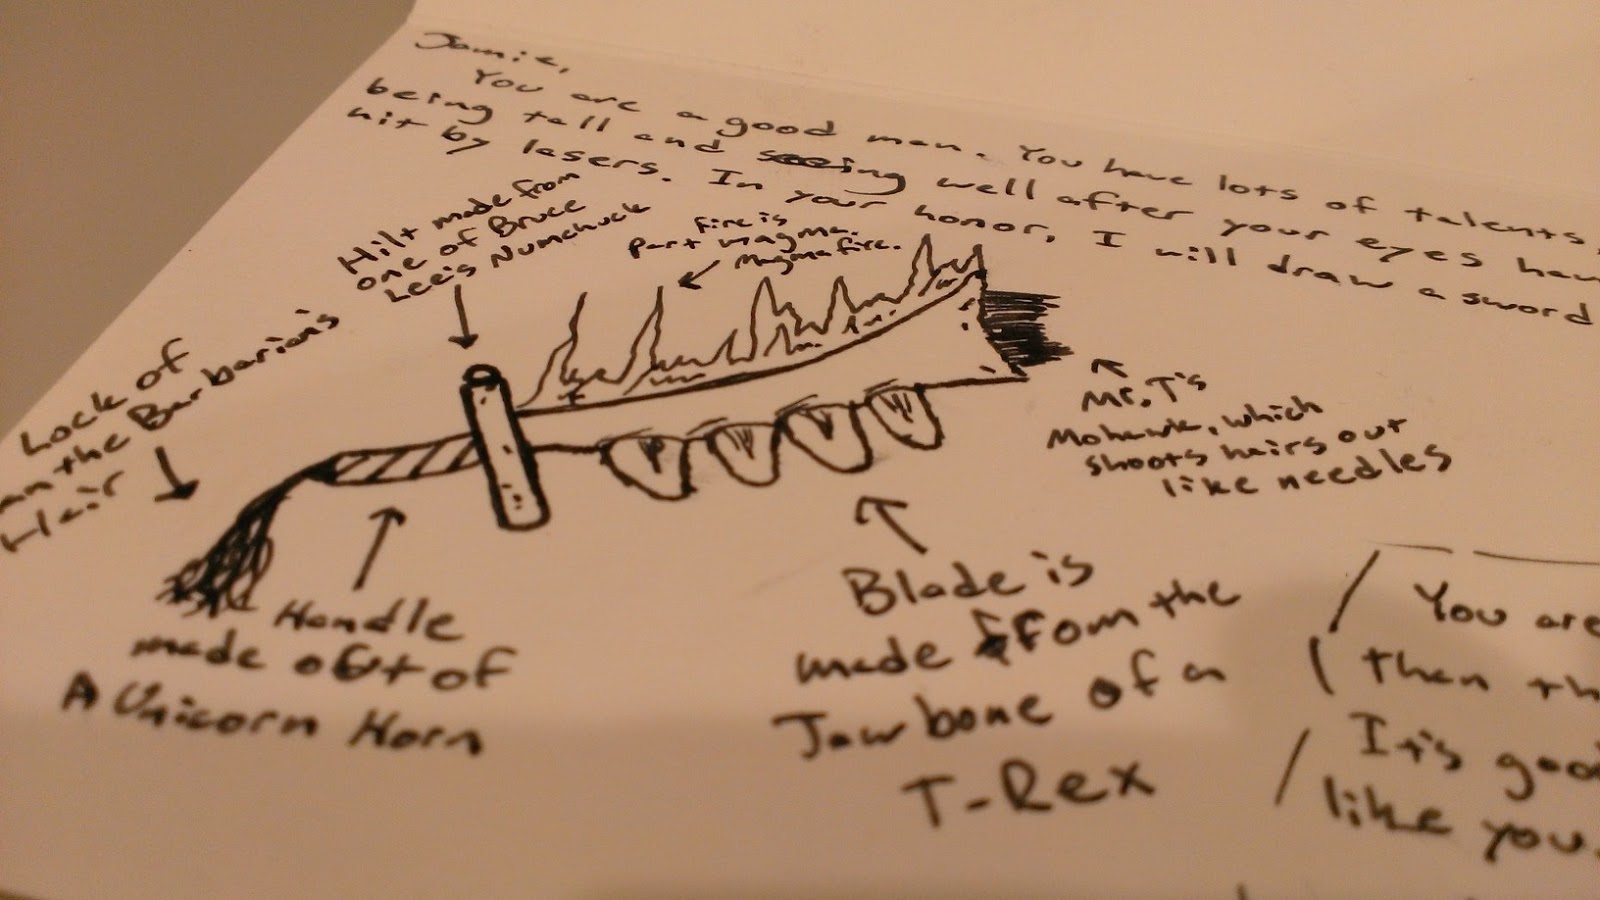 Jamie,
You are a good man. You have lots of talents,
being tall and seeing well after your eyes
hit by lasers. In your honor, I will draw a sword
Hilt made from
one of Bruce
Lee's Numchuck
Fire is
Part Magma.
Magmafire.
Lock of
the Barbarian's
Hair
Mr. T's
Mohawk, which
shoots hairs out
like needles
Handle
made out of
A Unicorn Horn
Blade is
made from the
Jawbone of a
T-Rex
You are
than
It's
like you.